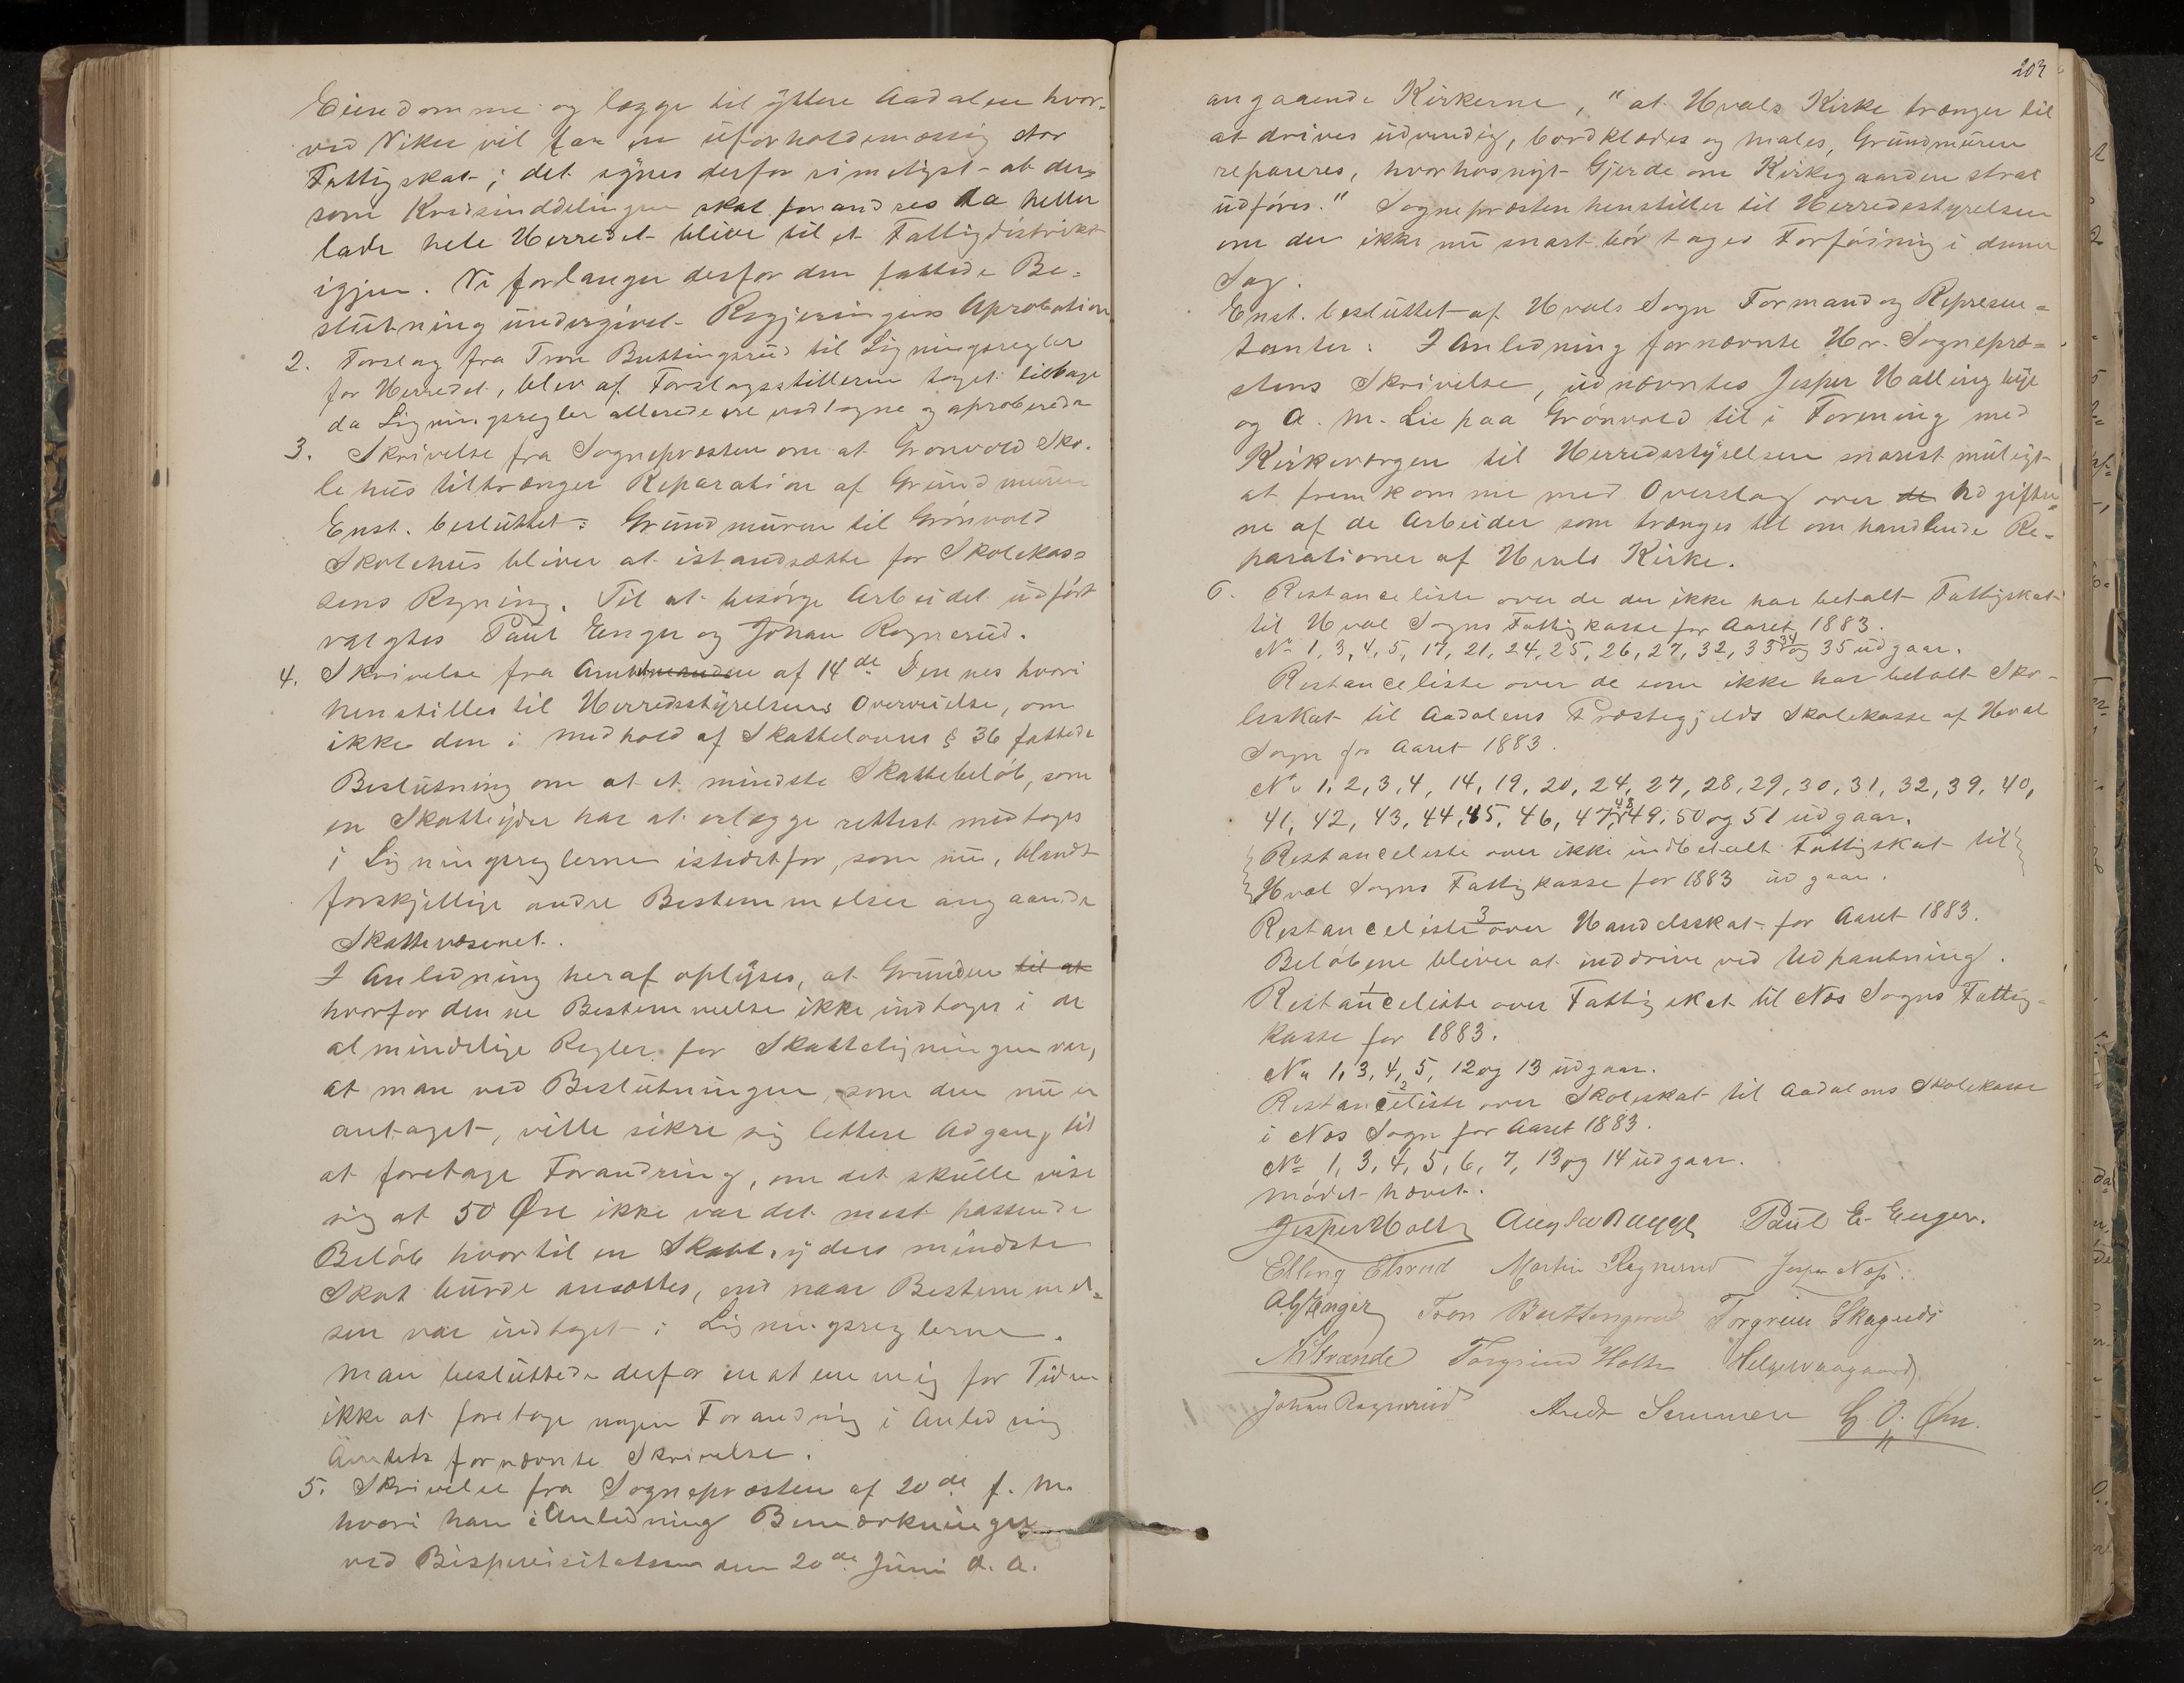 Eiendomme og lægge til yttere Aadalen hvor-
ved Viker vil faa en uforholdsmæssig stor
Fattigskat; det synes derfor rimeligst at der-
som Kredsinddelingen skal forandres da heller
lade hele Herredet blive til et Fattigdistrikt
igjen. Vi forlanger derfor den fattede Be-
slutning undergivet Regjeringens Aprobation
2. Forslag fra Tron Buttingsrud til Ligningsregler
for Herredet, blev af Forslagsstilleren taget tilbage
da Ligningsregler allerede ere vedtagne og aproberede
3. Skrivelse fra Sognepræsten om at Grønvold Sko-
lehus tiltrænger Reparation af Grundmuren
Enst. besluttet: Grundmuren til Grønvold
Skolehus bliver at istandsætte for Skolekas-
sens Regning. Til at besørge Arbeidet udført
valgtes Paul Enger og Johan Ragnerud.
4. Skrivelse fra Amtmanden af 14de Dennes hvori
henstilles til Herredsstyrelsens Overveielse, om
ikke den i medhold af Skatteloven § 36 fattede
Beslutning om at et mindste Skattebeløb, som
en Skatteyder har at erlægge rettest medtages
i Ligningsreglerne istedetfor, som nu, blandt
forskjellige andre Bestemmelser angaaende
Skattevæsenet.
I Anledning heraf oplyses, at Grunden til at
hvorfor denne Bestemmelse ikke indtages i de
almindelige Regler for Skatteligningen var,
at man ved Beslutningen, som den nu er
antaget, ville sikre sig lettere Adgang til
at foretage Forandring, om det skulle vise
sig at 50 Øre ikke var det mest passende
Beløb hvortil en Skatteyders mindste
Skat burde ansættes, end naar Bestemmel-
sen var indtaget i Ligningsreglerne.
man besluttede derfor enstemmig for Tiden
ikke at foretage nogen Forandring i Anledning
Amtets fornævnte Skrivelse.
5. Skrivelse fra Sognepræsten af 20de f. M.
hvori han i Anledning Bemærkninger
ved Bispevisitatsen den 20de Juni d. A.
203
angaaende Kirkerne, "at Hvals Kirke trænger til
at drives udvendig, bordklædes og males, Grundmuren
repareres, hvorhos nyt Gjerde om Kirkegaarden strax
udføres." Sognepræsten henstiller til Herredsstyrelsen
om der ikke nu snart bør tages Forføining i denne
Sag.
Enst. besluttet af Hvals Sogn Formand og Represen-
tanter: I Anledning fornævnte Hr. Sognepræ-
stens Skrivelse, udnævntes Jesper Hallingbye
og A. M. Lie paa Grønvold til i Forening med
Kirkeværgen til Herredsstyrelsen snarest muligt
at fremkomme med Overslag over de Udgifter-
ne af de Arbeider som trænges til omhandlende Re-
parationer af Hvals Kirke.
6. Restanceliste over de der ikke har betalt Fattigskat
til Hval Sogns Fattigkasse for Aaret 1883.
No 1, 3, 4, 5, 17, 21, 24, 25, 26, 27, 32, 33 34 og 35 udgaar.
Restanceliste over de som ikke har betalt Sko-
leskat til Aadalens Præstegjelds Skolekasse af Hval
Sogn for Aaret 1883.
No 1, 2, 3, 4, 14, 19, 20, 24, 27, 28, 29, 30, 31, 32, 39, 40,
41, 42, 43, 44, 45, 46, 47, 48, 49, 50 og 51 udgaar.
Restanceliste over ikke indbetalt Fattigskat til
Hval Sogns Fattigkasse for 1883 udgaar.
Restanceliste 3 over Handelsskat for Aaret 1883.
Beløbene bliver at inddrive ved Udpantning.
Restanceliste 1 over Fattigskat til Næs Sogns Fattig-
kasse for 1883.
No 1, 3, 4, 5, 12 og 13 udgaar.
Restanceliste 2 over Skoleskat til Aadalens Skolekasse
i Næs Sogn for Aaret 1883.
No 1, 3, 4, 5, 6, 7, 13 og 14 udgaar.
mødet hævet.
Jesper Holte Paul E. Enger.
Elling Elsrud Martin Ragnerud Jesper Næss
Tron Buttingsrud Torgrim Skagnes
M Strande Torgrim Holte Helge
Johan Ragnerud Andr Semmen G. O. Øen.